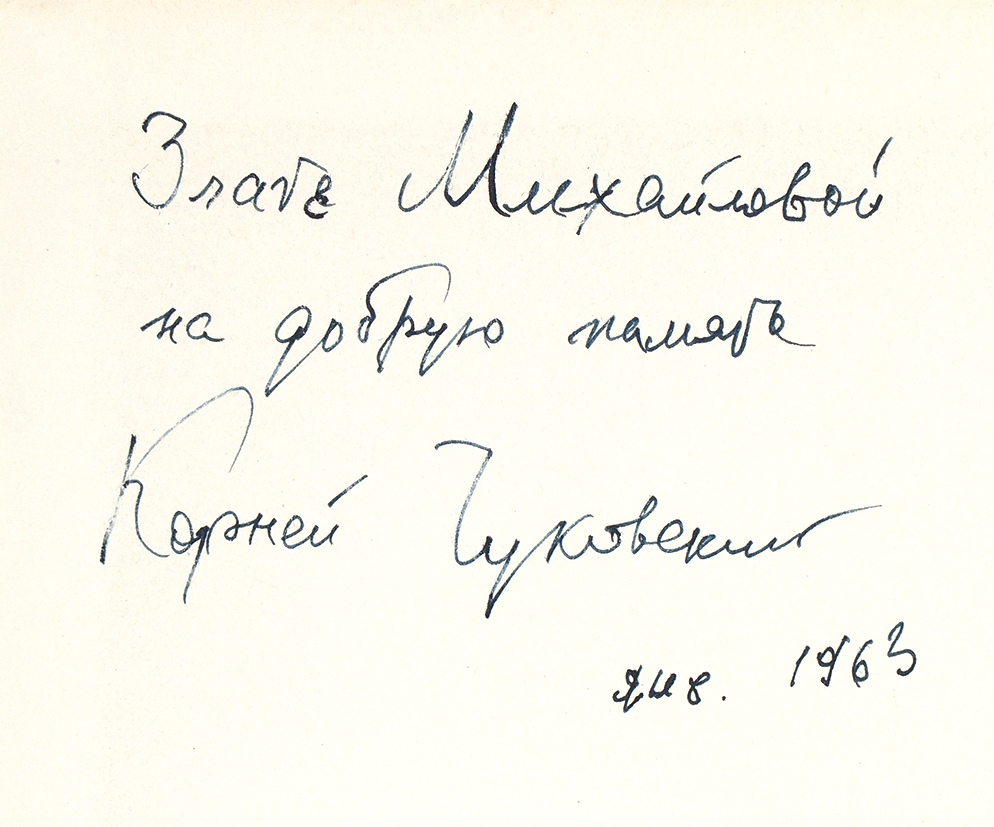 Злате Михайловой
на добрую память
Корней Чуковский
янв. 1963